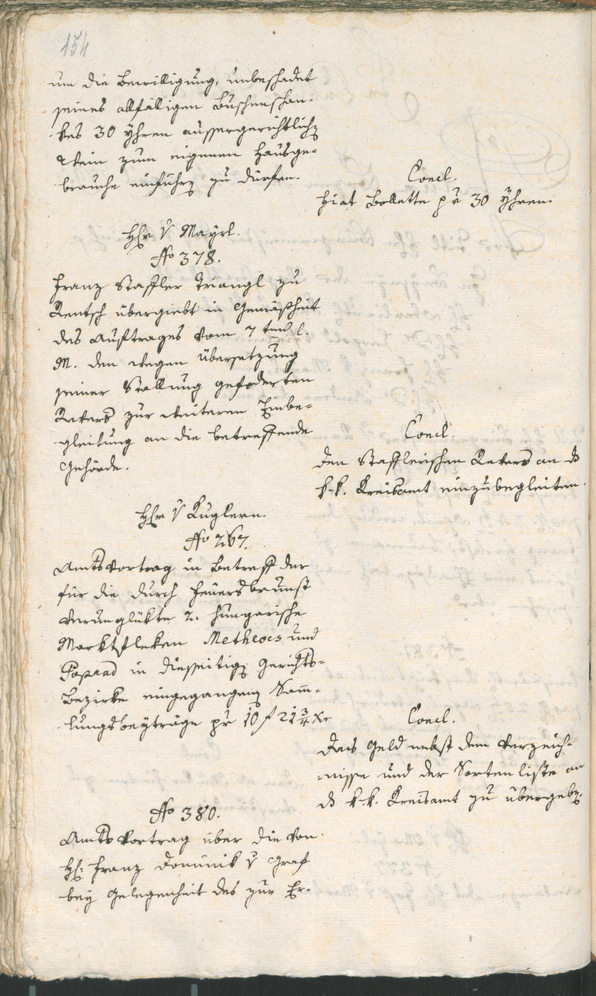 154
um die Bewilligung, unbeschadet
seines allfäligen Buschenschan-
kes 30 Yhren aussergerichtlich
Wein zum eigenen Hausge-
brauche einführen zu dürfen.
Concl.
Fiat Bollette pr 30 Yhren.
Hr v Mayrl.
No 378.
Franz Staffler Triangl zu
Rentsch übergiebt in Gemäsheit
des Auftrages vom 7 ten l.
M. den wegen Übersetzung
seiner Stallung gefoderten
Revers zur weiteren Einbe-
gleitung an die betreffende
Behörde.
Concl.
den Stafflerischen Revers an d
k. k. Kreisamt einzubegleiten.
Hr v Kuglern.
No 267.
Amtsvortrag in Betreff der
für die durch Feuersbrunst
verunglükte 2. hungarische
Marktfleken Metheocs und
Poprad in diesseitigen Gerichts-
Bezirke eingegangenen Samm-
lungsbeyträge pr 10 f 21 3/4 xr
Concl.
das Geld nebst dem Verzeich-
nisse und der Sortenliste an
d k. k. Kreisamt zu übergeben.
No 380.
Amtsvortrag über die von
H. Franz Dominik v Graf
bey Gelegenheit des zur Er-